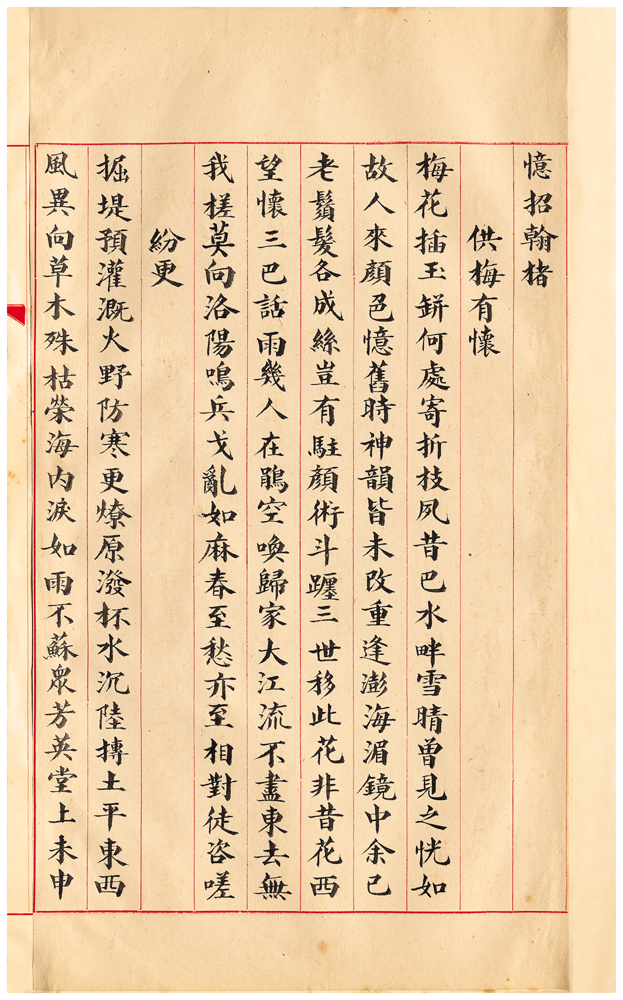 憶招翰楮
供梅有懷
梅花插玉缾何處寄折枝夙昔巴水畔雪晴曾見之恍如
故人來顏色憶舊時神韻皆未改重逢澎海湄鏡中余已
老鬚髮各成絲豈有駐顏術斗躔三世移此花非昔花西
望懷三巴話雨幾人在鵑空喚歸家大江流不盡東去無
我槎莫向洛陽鳴兵戈亂如麻春至愁亦至相對徒咨嗟
紛更
掘堤預灌溉火野防寒更燎原潑杯水沉陸摶土平東西
風異向草木殊枯榮海內淚如雨不蘇眾芳英堂上未申